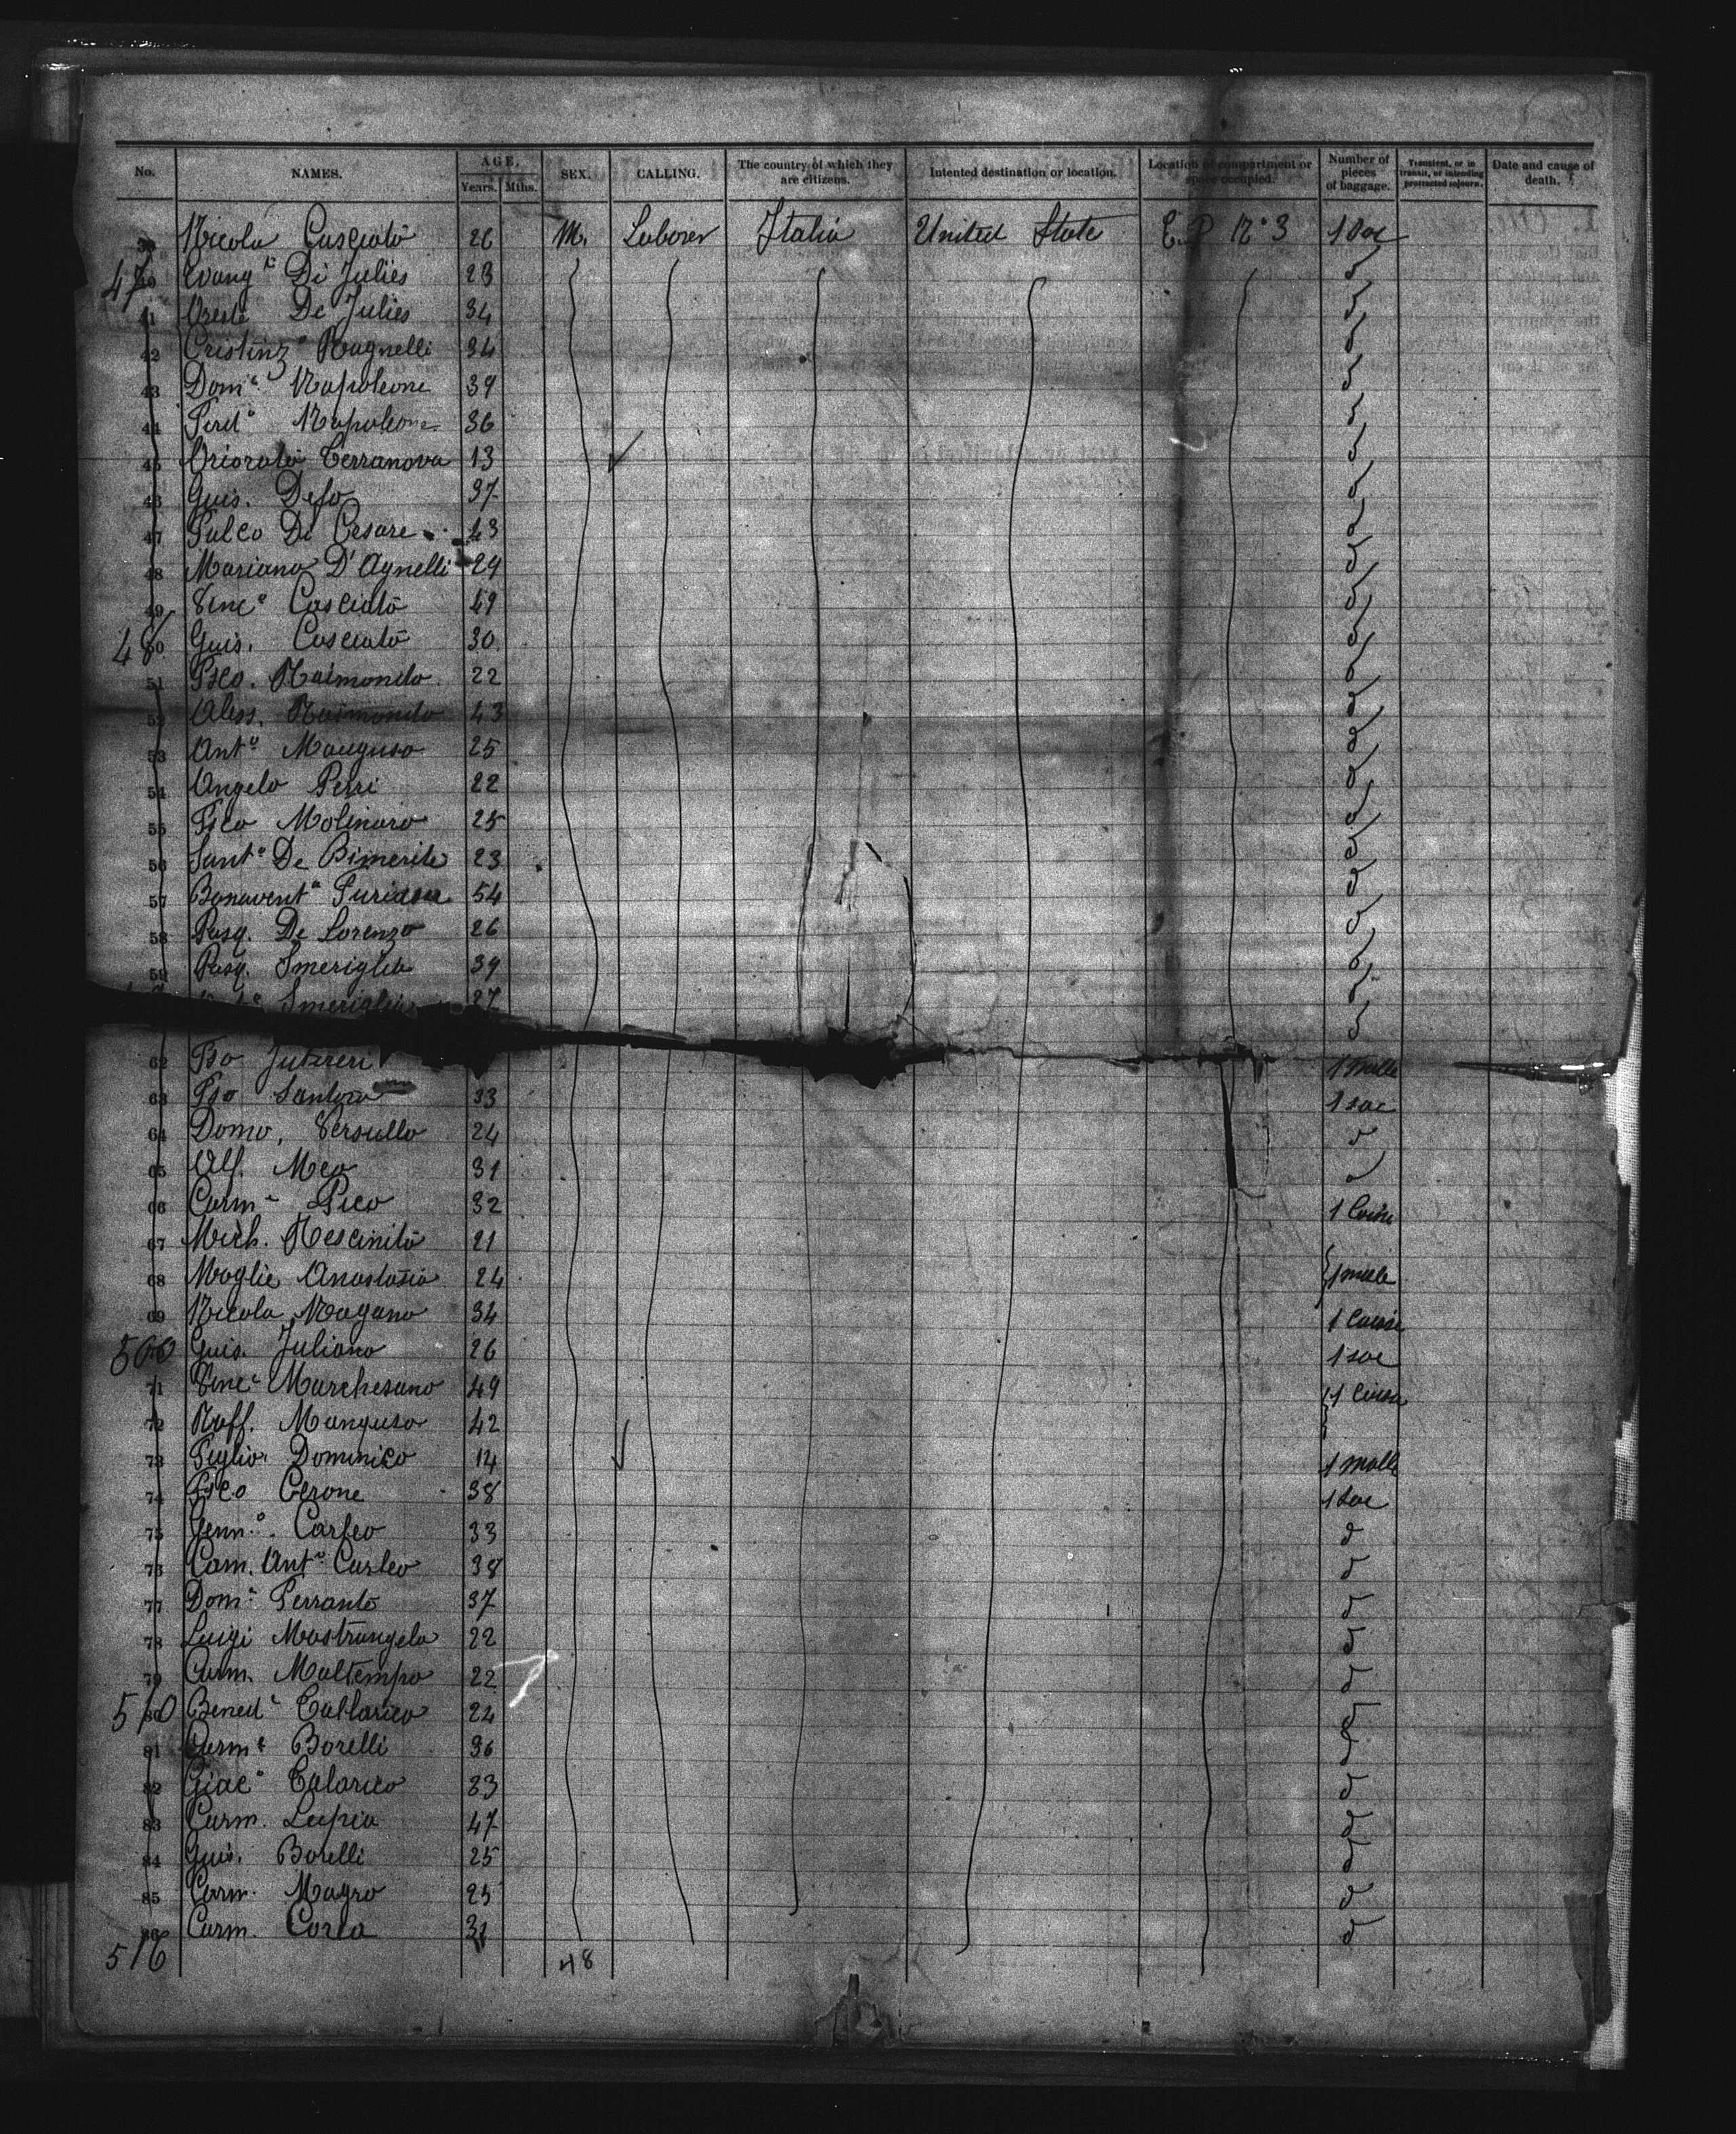 No. NAMES. AGE. Years. Mths. SEX. CALLING. The country of which they are citizens. Intented destination or location. Location of compartment or space occupied. Number of pieces of baggage. Transient, or in transit, or intending protracted sojourn. Date and cause of death.
39 Nicola Casciato 26 M. Laborer Italia United State E.P N° 3 1 Sac
Di Julies 23 d
41 De Julies 34 d
42 34 d
43 Dom. Napoleone 39 d
44 Ferd° Napoleone 36 d
45 Terranova 13 d
46 Guis. Defo 37 d
47 De Cesare 43 d
48 Mariano D'Agnelli 29 d
49 Vinc° Casciato 49 d
50 Guis. Casciato 30 d
51 Raimondo 22 d
52 Aless. Raimondo 43 d
53 Ant° Manguso 25 d
54 Angelo Perri 22 d
55 Fsco Molinaro 25 d
56 Sant° De 23 d
57 Bonavent° 54 d
58 Pasq. De Lorenzo 26 d
59 Pasq. Smeriglio 39 d
Smeriglio 27 d
62 1 malle
63 Santoro 33 1 sac
64 Domo, Versullo 24 d
65 Alf. Meo 31 d
66 Carm Pico 32 1 Caisse
67 Mich. Rescinito 21
68 Moglie Anastasia 24 1 malle
69 Nicola Magano 34 1 Caisse
500 Guis. Juliano 26 1 sac
71 Vinc° Marchesano 49 1 Caisse
72 Raff. Manguso 42
73 Figlio Dominico 14 1 malle
74 Fsco Cerone 38 1 Sac
75 Genn° Carfeo 33 d
76 Cam. Ant° Carfeo 38 d
77 Dom. Ferranto 37 d
78 Luigi Mastrangelo 22 d
79 Carm. Maltempo 22 d
510 80 Bened Tallarico 24 d
81 Carm Borelli 36 d
82 Giac° Talarico 33 d
83 Carm. Lupia 47 d
84 Guis. Borelli 25 d
85 Carm. Magro 25 d
86 Carm. 31 d
516 48